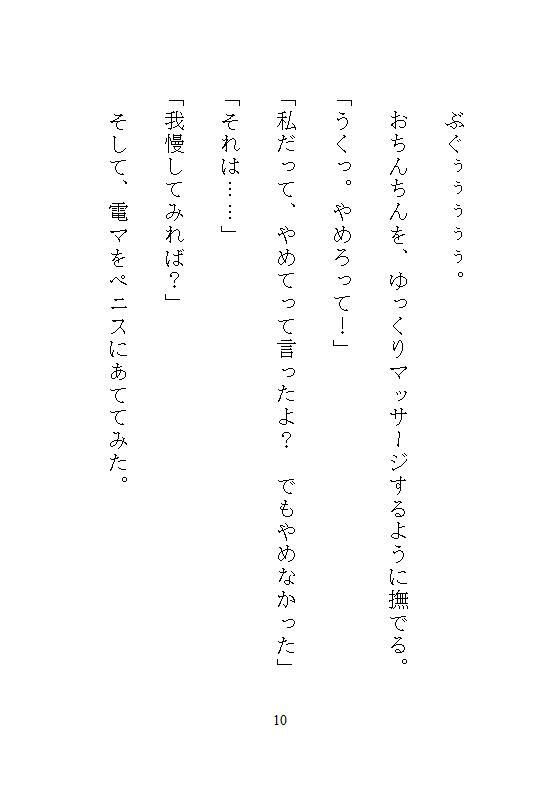 ぶぐぅぅぅぅぅ。
おちんちんを、ゆっくりマッサージするように撫でる。
「うくっ。やめろって！」
「私だって、やめてって言ったよ？　でもやめなかった」
「それは……」
「我慢してみれば？」
そして、電マをペニスにあててみた。
10